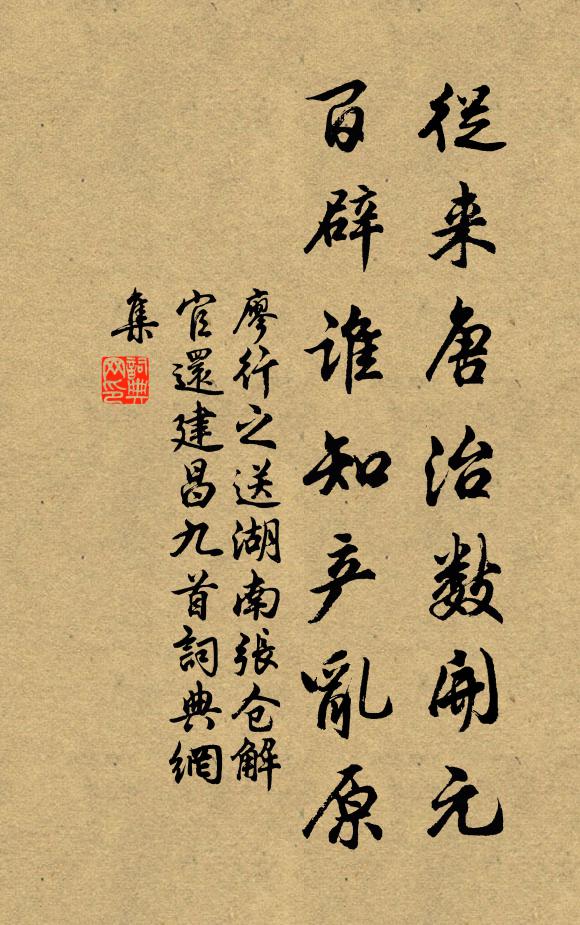 從来唐治数開元
百辟誰知产亂原
廖行之送湖南張仓解
官還建昌九首詞典網
集
詞典網印